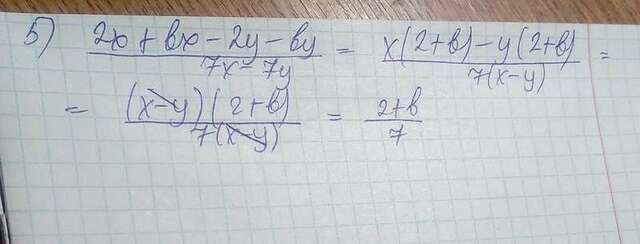 5) (2x + bx - 2y - by)/(7x - 7y) = (x(2+b) - y(2+b))/(7(x-y)) =
= ((x-y)(2+b))/(7(x-y)) = (2+b)/7